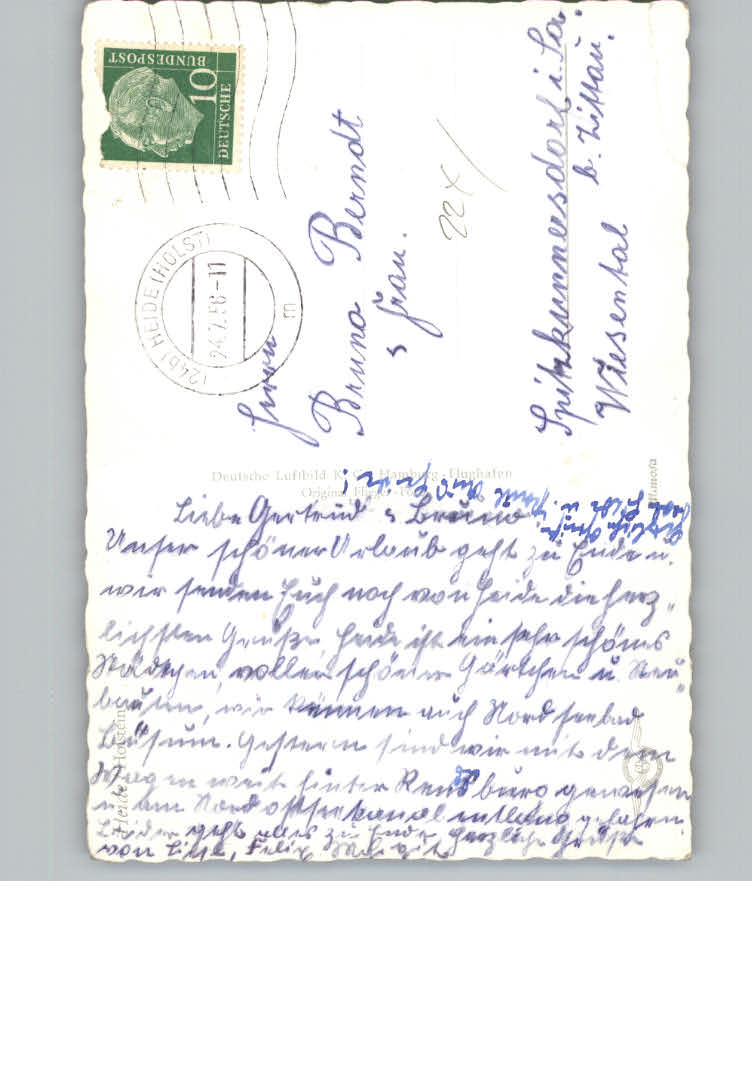 DEUTSCHE
BUNDESPOST
10
(24b) HEIDE (HOLST)
24.7.58-11
m
Herrn
Bruno Berndt
u Frau.
22X/
Spitzkunnersdorf i. Sa.
b. Zittau.
Wiesental
Deutsche Luftbild K.G., Hamburg-Flughafen
Mimosa
Heide Holstein
Liebe Gertrud u Bruno
Unser schöner Urlaub geht zu Ende u.
wir senden Euch noch von Heide die herz-
lichsten Grüße. Heide ist ein sehr schönes
Städtchen, voller schöner Gärtchen u. Neu-
bauten, wir kennen auch Nordseebad
Büsum. Gestern sind wir mit dem
Wagen weit hinter Rendsburg gewesen
u. am Nordostseekanal entlang gefahren.
Leider geht alles zu Ende herzliche Grüße
von Felix